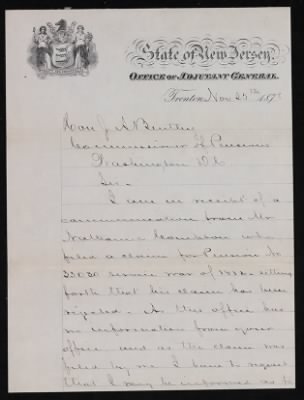 State of New Jersey.
OFFICE OF ADJUTANT GENERAL.
Trenton, Nov 29th 187
Hon J. A. Bentley
Commissioner of Pensions
Washington D.C
Sir.
I am in receipt of a
communication from Mr
Nathaniel who
filed a claim for Pension No
33030 service war of 1812, setting
forth that his claim has been
rejected. As this office has
no information from your
office and as the claim was
filed by me I have to request
that I may be informed as to